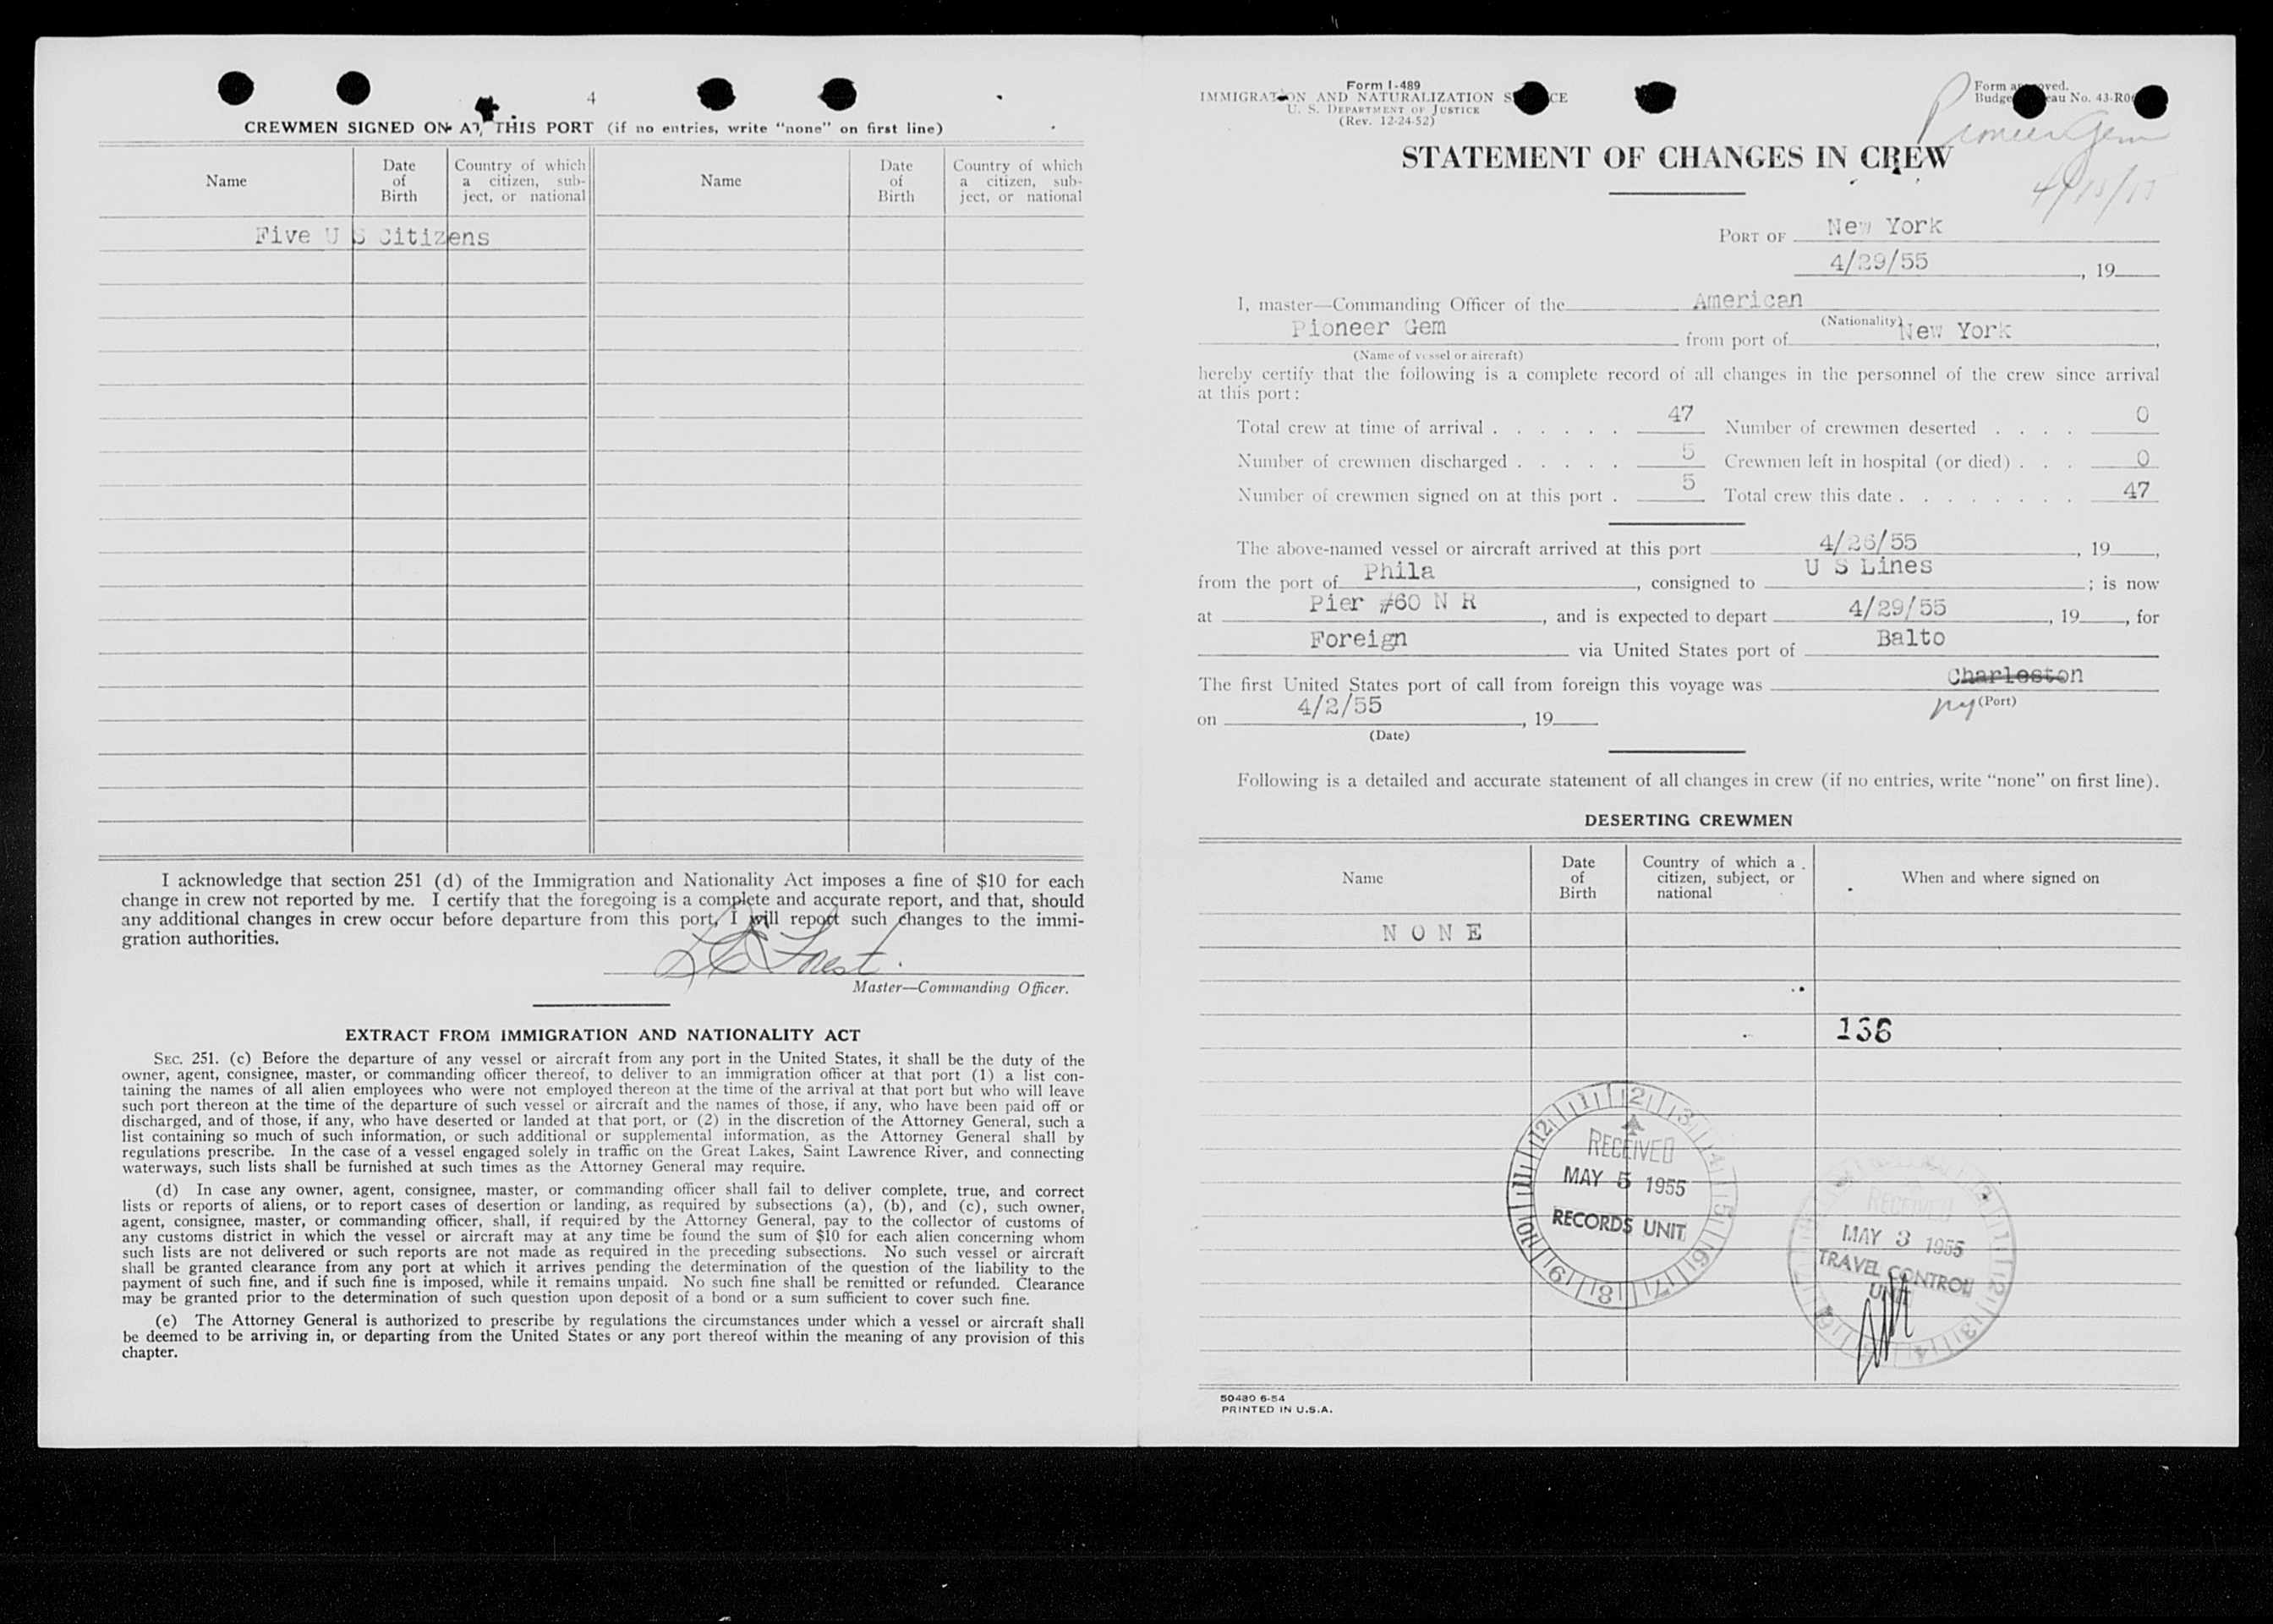 4
CREWMEN SIGNED ON AT THIS PORT (if no entries, write “none” on first line)
Name
Date of Birth
Country of which a citizen, subject, or national
Name
Date of Birth
Country of which a citizen, subject, or national
Five U S Citizens
I acknowledge that section 251 (d) of the Immigration and Nationality Act imposes a fine of $10 for each
change in crew not reported by me. I certify that the foregoing is a complete and accurate report, and that, should
any additional changes in crew occur before departure from this port, I will report such changes to the immi-
gration authorities.
Master—Commanding Officer.
EXTRACT FROM IMMIGRATION AND NATIONALITY ACT
SEC. 251. (c) Before the departure of any vessel or aircraft from any port in the United States, it shall be the duty of the
owner, agent, consignee, master, or commanding officer thereof, to deliver to an immigration officer at that port (1) a list con-
taining the names of all alien employees who were not employed thereon at the time of the arrival at that port but who will leave
such port thereon at the time of the departure of such vessel or aircraft and the names of those, if any, who have been paid off or
discharged, and of those, if any, who have deserted or landed at that port, or (2) in the discretion of the Attorney General, such a
list containing so much of such information, or such additional or supplemental information, as the Attorney General shall by
regulations prescribe. In the case of a vessel engaged solely in traffic on the Great Lakes, Saint Lawrence River, and connecting
waterways, such lists shall be furnished at such times as the Attorney General may require.
(d) In case any owner, agent, consignee, master, or commanding officer shall fail to deliver complete, true, and correct
lists or reports of aliens, or to report cases of desertion or landing, as required by subsections (a), (b), and (c), such owner,
agent, consignee, master, or commanding officer, shall, if required by the Attorney General, pay to the collector of customs of
any customs district in which the vessel or aircraft may at any time be found the sum of $10 for each alien concerning whom
such lists are not delivered or such reports are not made as required in the preceding subsections. No such vessel or aircraft
shall be granted clearance from any port at which it arrives pending the determination of the question of the liability to the
payment of such fine, and if such fine is imposed, while it remains unpaid. No such fine shall be remitted or refunded. Clearance
may be granted prior to the determination of such question upon deposit of a bond or a sum sufficient to cover such fine.
(e) The Attorney General is authorized to prescribe by regulations the circumstances under which a vessel or aircraft shall
be deemed to be arriving in, or departing from the United States or any port thereof within the meaning of any provision of this
chapter.
Form I-489
IMMIGRATION AND NATURALIZATION SERVICE
U. S. DEPARTMENT OF JUSTICE
(Rev. 12-24-52)
Form approved.
Budget Bureau No. 43-R0
Pioneer Gem
STATEMENT OF CHANGES IN CREW
PORT OF New York
4/29/55, 19
I, master—Commanding Officer of the American
(Nationality)
Pioneer Gem from port of New York,
(Name of vessel or aircraft)
hereby certify that the following is a complete record of all changes in the personnel of the crew since arrival
at this port:
Total crew at time of arrival . . . . . . 47 Number of crewmen deserted . . . . 0
Number of crewmen discharged . . . . . 5 Crewmen left in hospital (or died) . . . 0
Number of crewmen signed on at this port . 5 Total crew this date . . . . . . . . 47
The above-named vessel or aircraft arrived at this port 4/26/55, 19,
from the port of Phila, consigned to U S Lines; is now
at Pier #60 N R, and is expected to depart 4/29/55, 19, for
Foreign via United States port of Balto
The first United States port of call from foreign this voyage was Charleston
ny (Port)
on 4/2/55, 19
(Date)
Following is a detailed and accurate statement of all changes in crew (if no entries, write “none” on first line).
DESERTING CREWMEN
Name
Date of Birth
Country of which a citizen, subject, or national
When and where signed on
N O N E
136
RECEIVED
MAY 5 1955
RECORDS UNIT
RECEIVED
MAY 3 1955
TRAVEL CONTROL
UNIT
50480 6-54
PRINTED IN U.S.A.